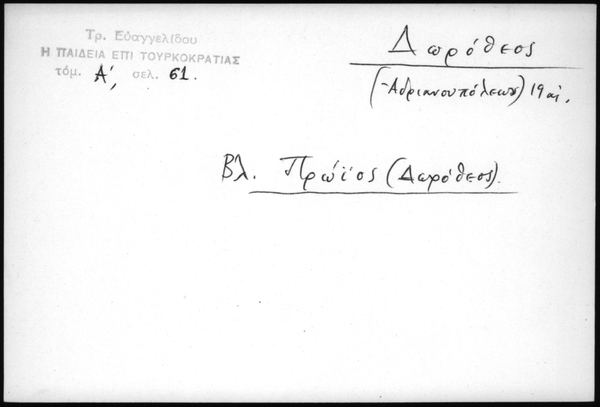 Τρ. Εὐαγγελίδου
Η ΠΑΙΔΕΙΑ ΕΠΙ ΤΟΥΡΚΟΚΡΑΤΙΑΣ
τόμ. Α΄, σελ. 61.
Δωρόθεος
(-Αδριανουπόλεως) 19 αἰ.
Βλ. Πρώϊος (Δωρόθεος).